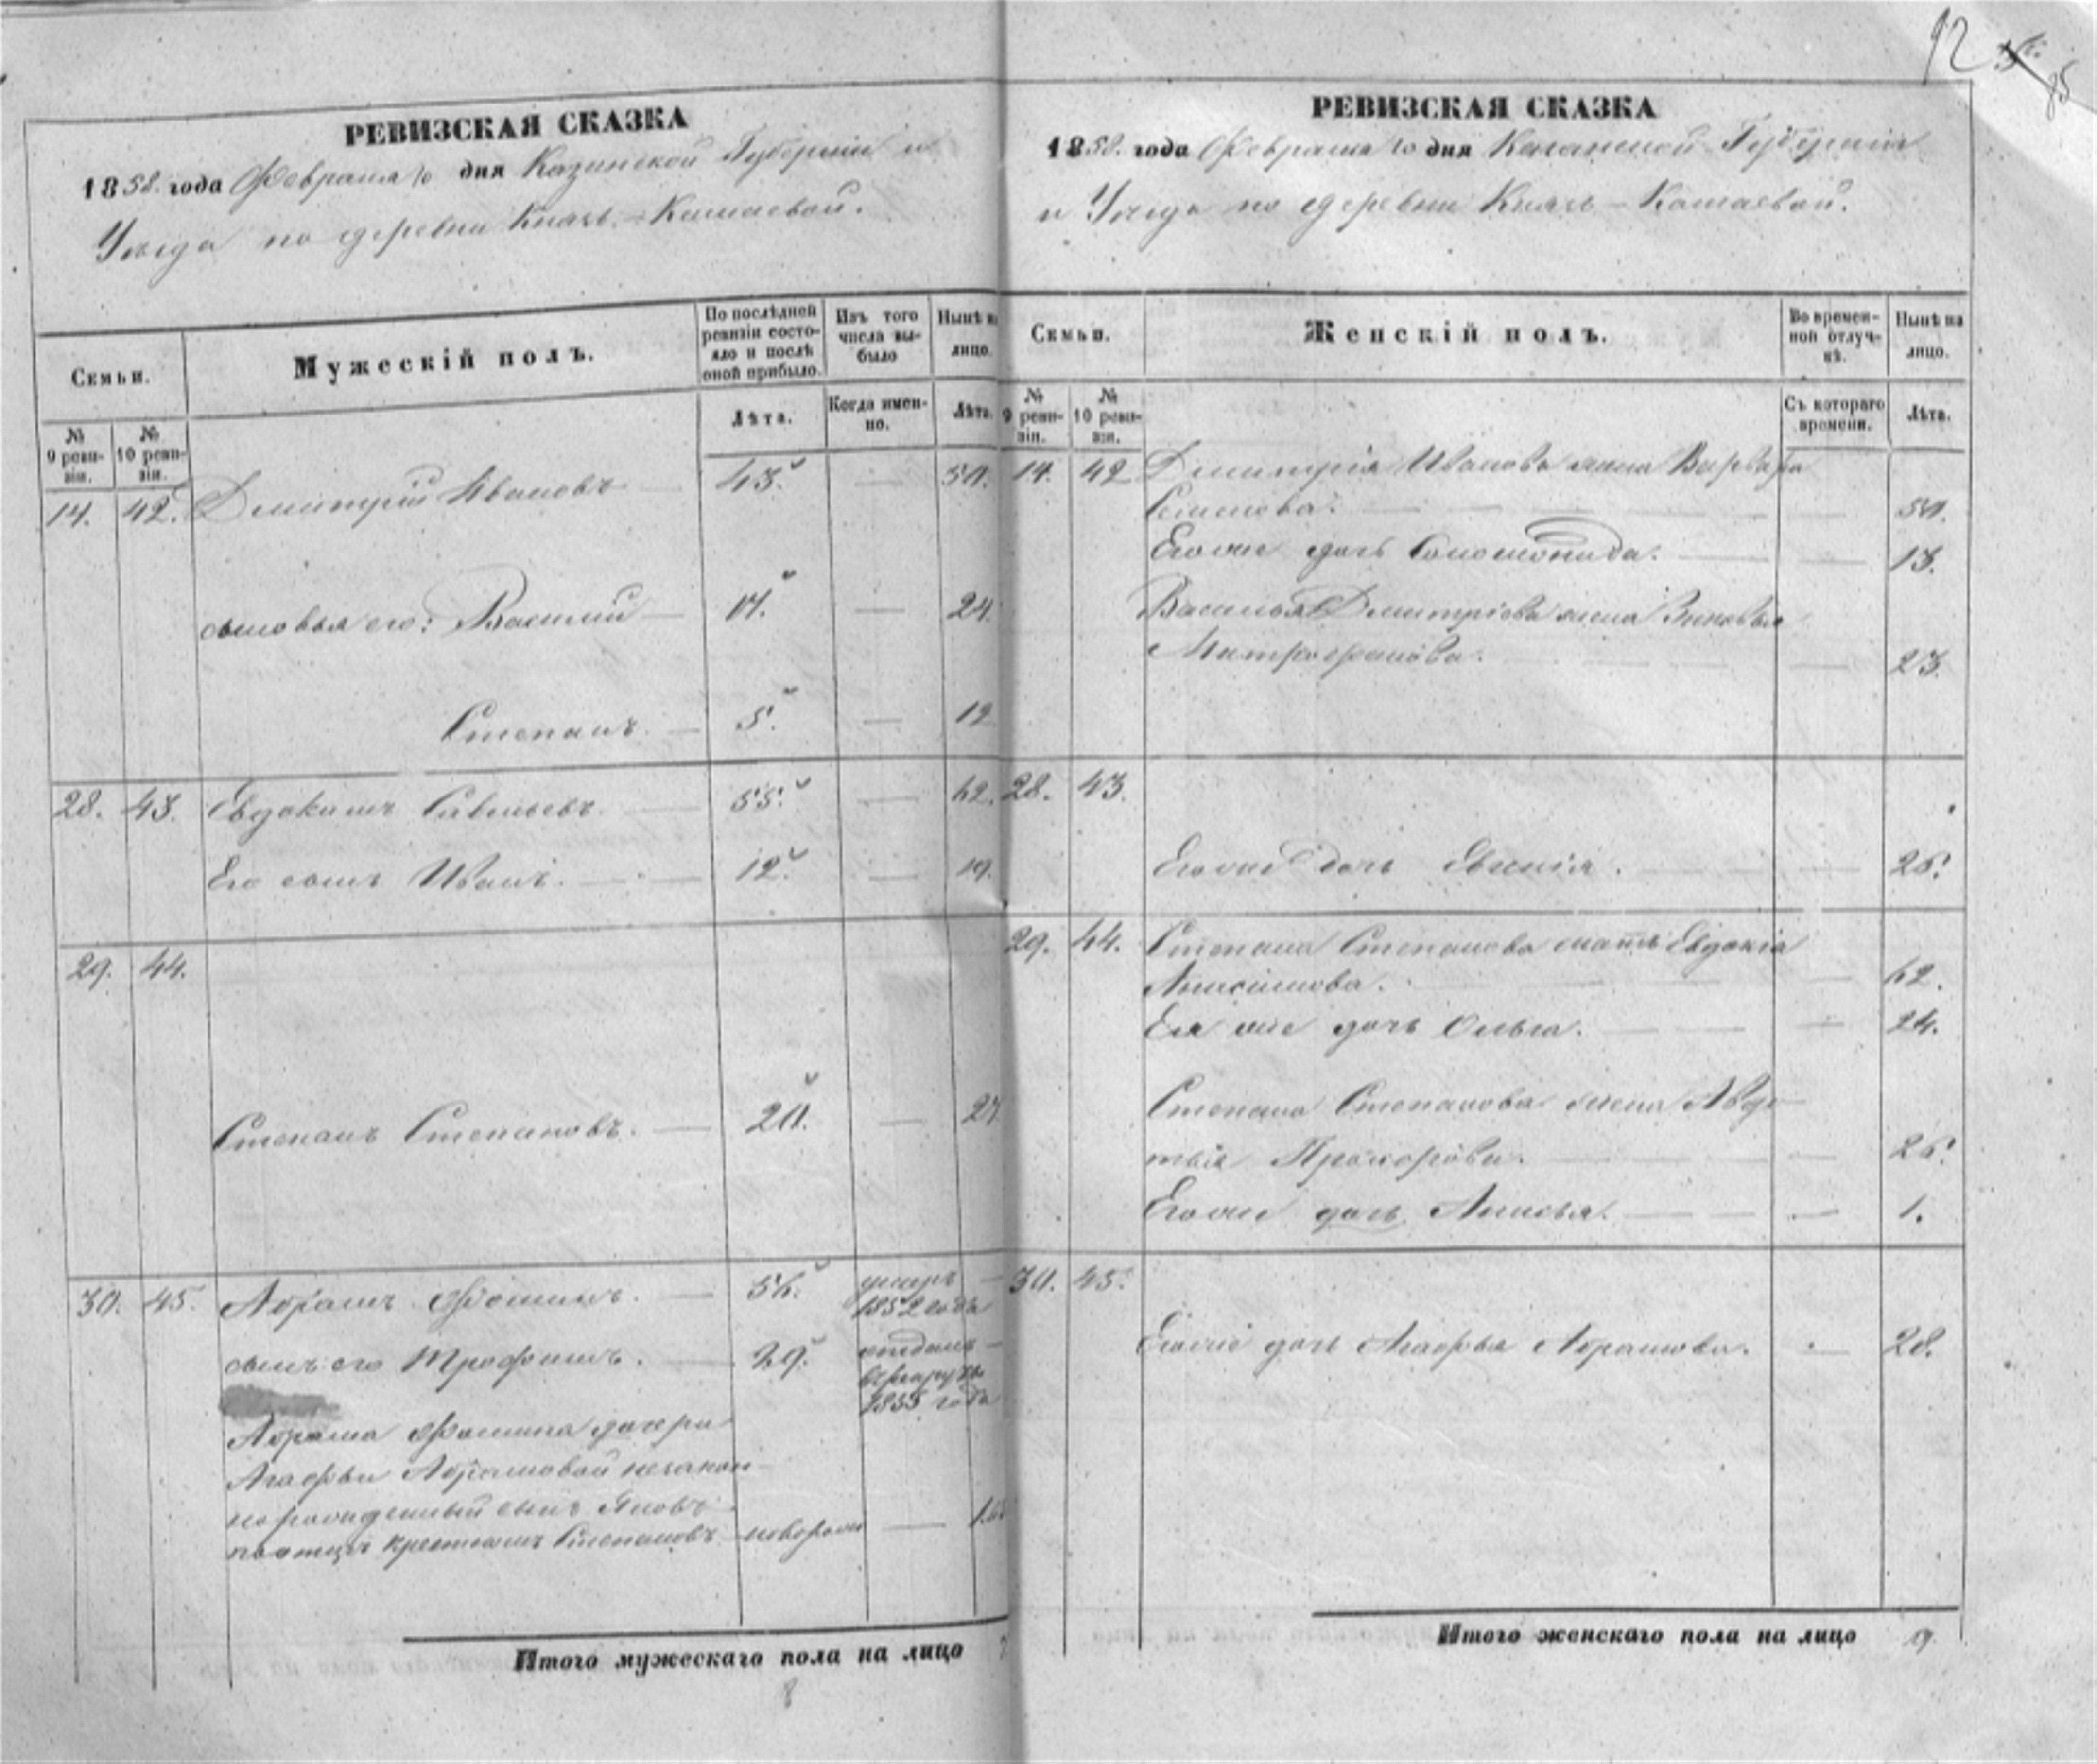 92
85
РЕВИЗСКАЯ СКАЗКА
1858. года Февраля 10 дня Казанской Губернiи и
Уѣзда по деревни Князь-Камаевой.
Семьи.
Мужескiй полъ.
По послѣдней ревизiи состояло и послѣ оной прибыло.
Изъ того числа выбыло
Нынѣ на лицо.
№ 9 ревизiи.
№ 10 ревизiи.
Лѣта.
Когда именно.
Лѣта.
14. 42. Дмитрiй Ивановъ 43. — 50.
сыновья его: Василiй 17. — 24.
Степанъ. 5. — 12
28. 43. Евдокимъ Савельевъ. 55. — 62.
Его сынъ Иванъ. 12. — 19.
29. 44.
Степанъ Степановъ. 20. — 27
30. 45. Абрамъ Фоминъ. 56. умеръ
1852 года
сынъ его Трофимъ. 29. отданъ
в рекруты
1855 года
Абрама Фомина дочери
Агафьи Абрамовой незакон-
но рожденный сынъ Яковъ
крестнымъ Степановъ новорож
Итого мужескаго пола на лицо
8
РЕВИЗСКАЯ СКАЗКА
1858. года Февраля 10 дня Казанской Губернiи
и Уѣзда по деревни Князь-Камаевой.
Семьи.
Женскiй полъ.
Во временной отлучкѣ.
Нынѣ на лицо.
№ 9 ревизiи.
№ 10 ревизiи.
Съ котораго времени.
Лѣта.
14. 42 Дмитрiя Иванова жена Варвара
Семенова. 50.
Его же дочь Соломонида. 13.
Василья Дмитрiева жена Зиновья
Митрофанова. 23.
28. 43.
Его же дочь Евгенiя. 25.
29. 44. Степана Степанова мать Евдокiя
62.
Ея же дочь Ольга. 24.
Степана Степанова жена Авдо-
тья Прохорова. 25.
Его же дочь Анисья. 1.
30. 45.
Его же дочь Агафья Абрамова. 28.
Итого женскаго пола на лицо 9.